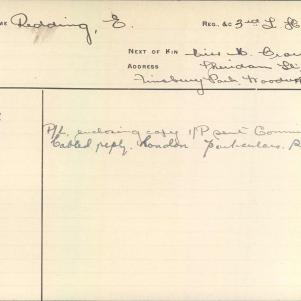 ME Redding, E. REG. &C 3rd L. H
NEXT OF KIN Miss
ADDRESS Sheridan St
Finsbury Park
P/L enclosing copy I/P sent
Cabled reply. London particulars.